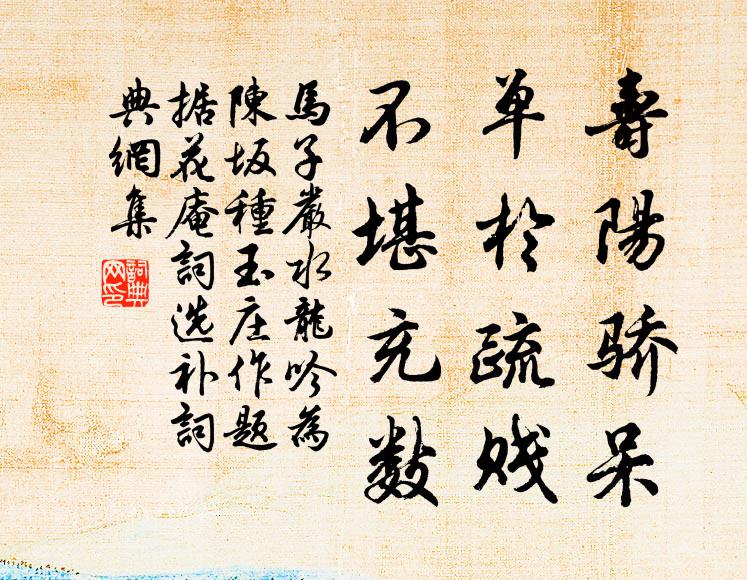 壽陽骄呆
单於疏贱
不堪充数
馬子嚴水龍吟為
陳坂種玉庄作題
据花庵詞选补詞
典網集
詞典
网印